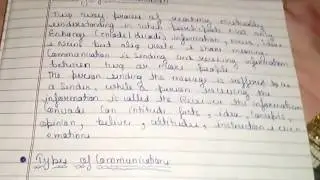 Two way process of reaching mutually
understanding in which participate not only
Exchange (encode) (decode) information, news, ideas
& News but also create & share meaning.
Communication is sending and receiving information
between two or more people.
The person sending the message is reffered to as
a Sender, while a person receiving the
information is called the Receiver the information
convead can intitud, facts, idea, concepts,
opinion, believe, attitudes, instruction & even
emotions
Types of Communication